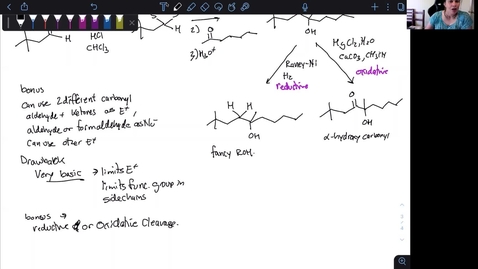 H
HCl
CHCl3
S
2)
O
3) H3O+
OH
Raney-Ni
H2
reductive
HgCl2, H2O
CaCO3, CH3CN
oxidative
H H
OH
fancy ROH.
O
OH
α-hydroxy carbonyl
bonus
can use 2 different carbonyl
aldehyde + ketones as E+,
aldehyde or formaldehyde as Nu-
can use other E+
Drawback
Very basic → limits E+
limits func. group in
sidechains
bonus →
reductive or oxidative cleavage.